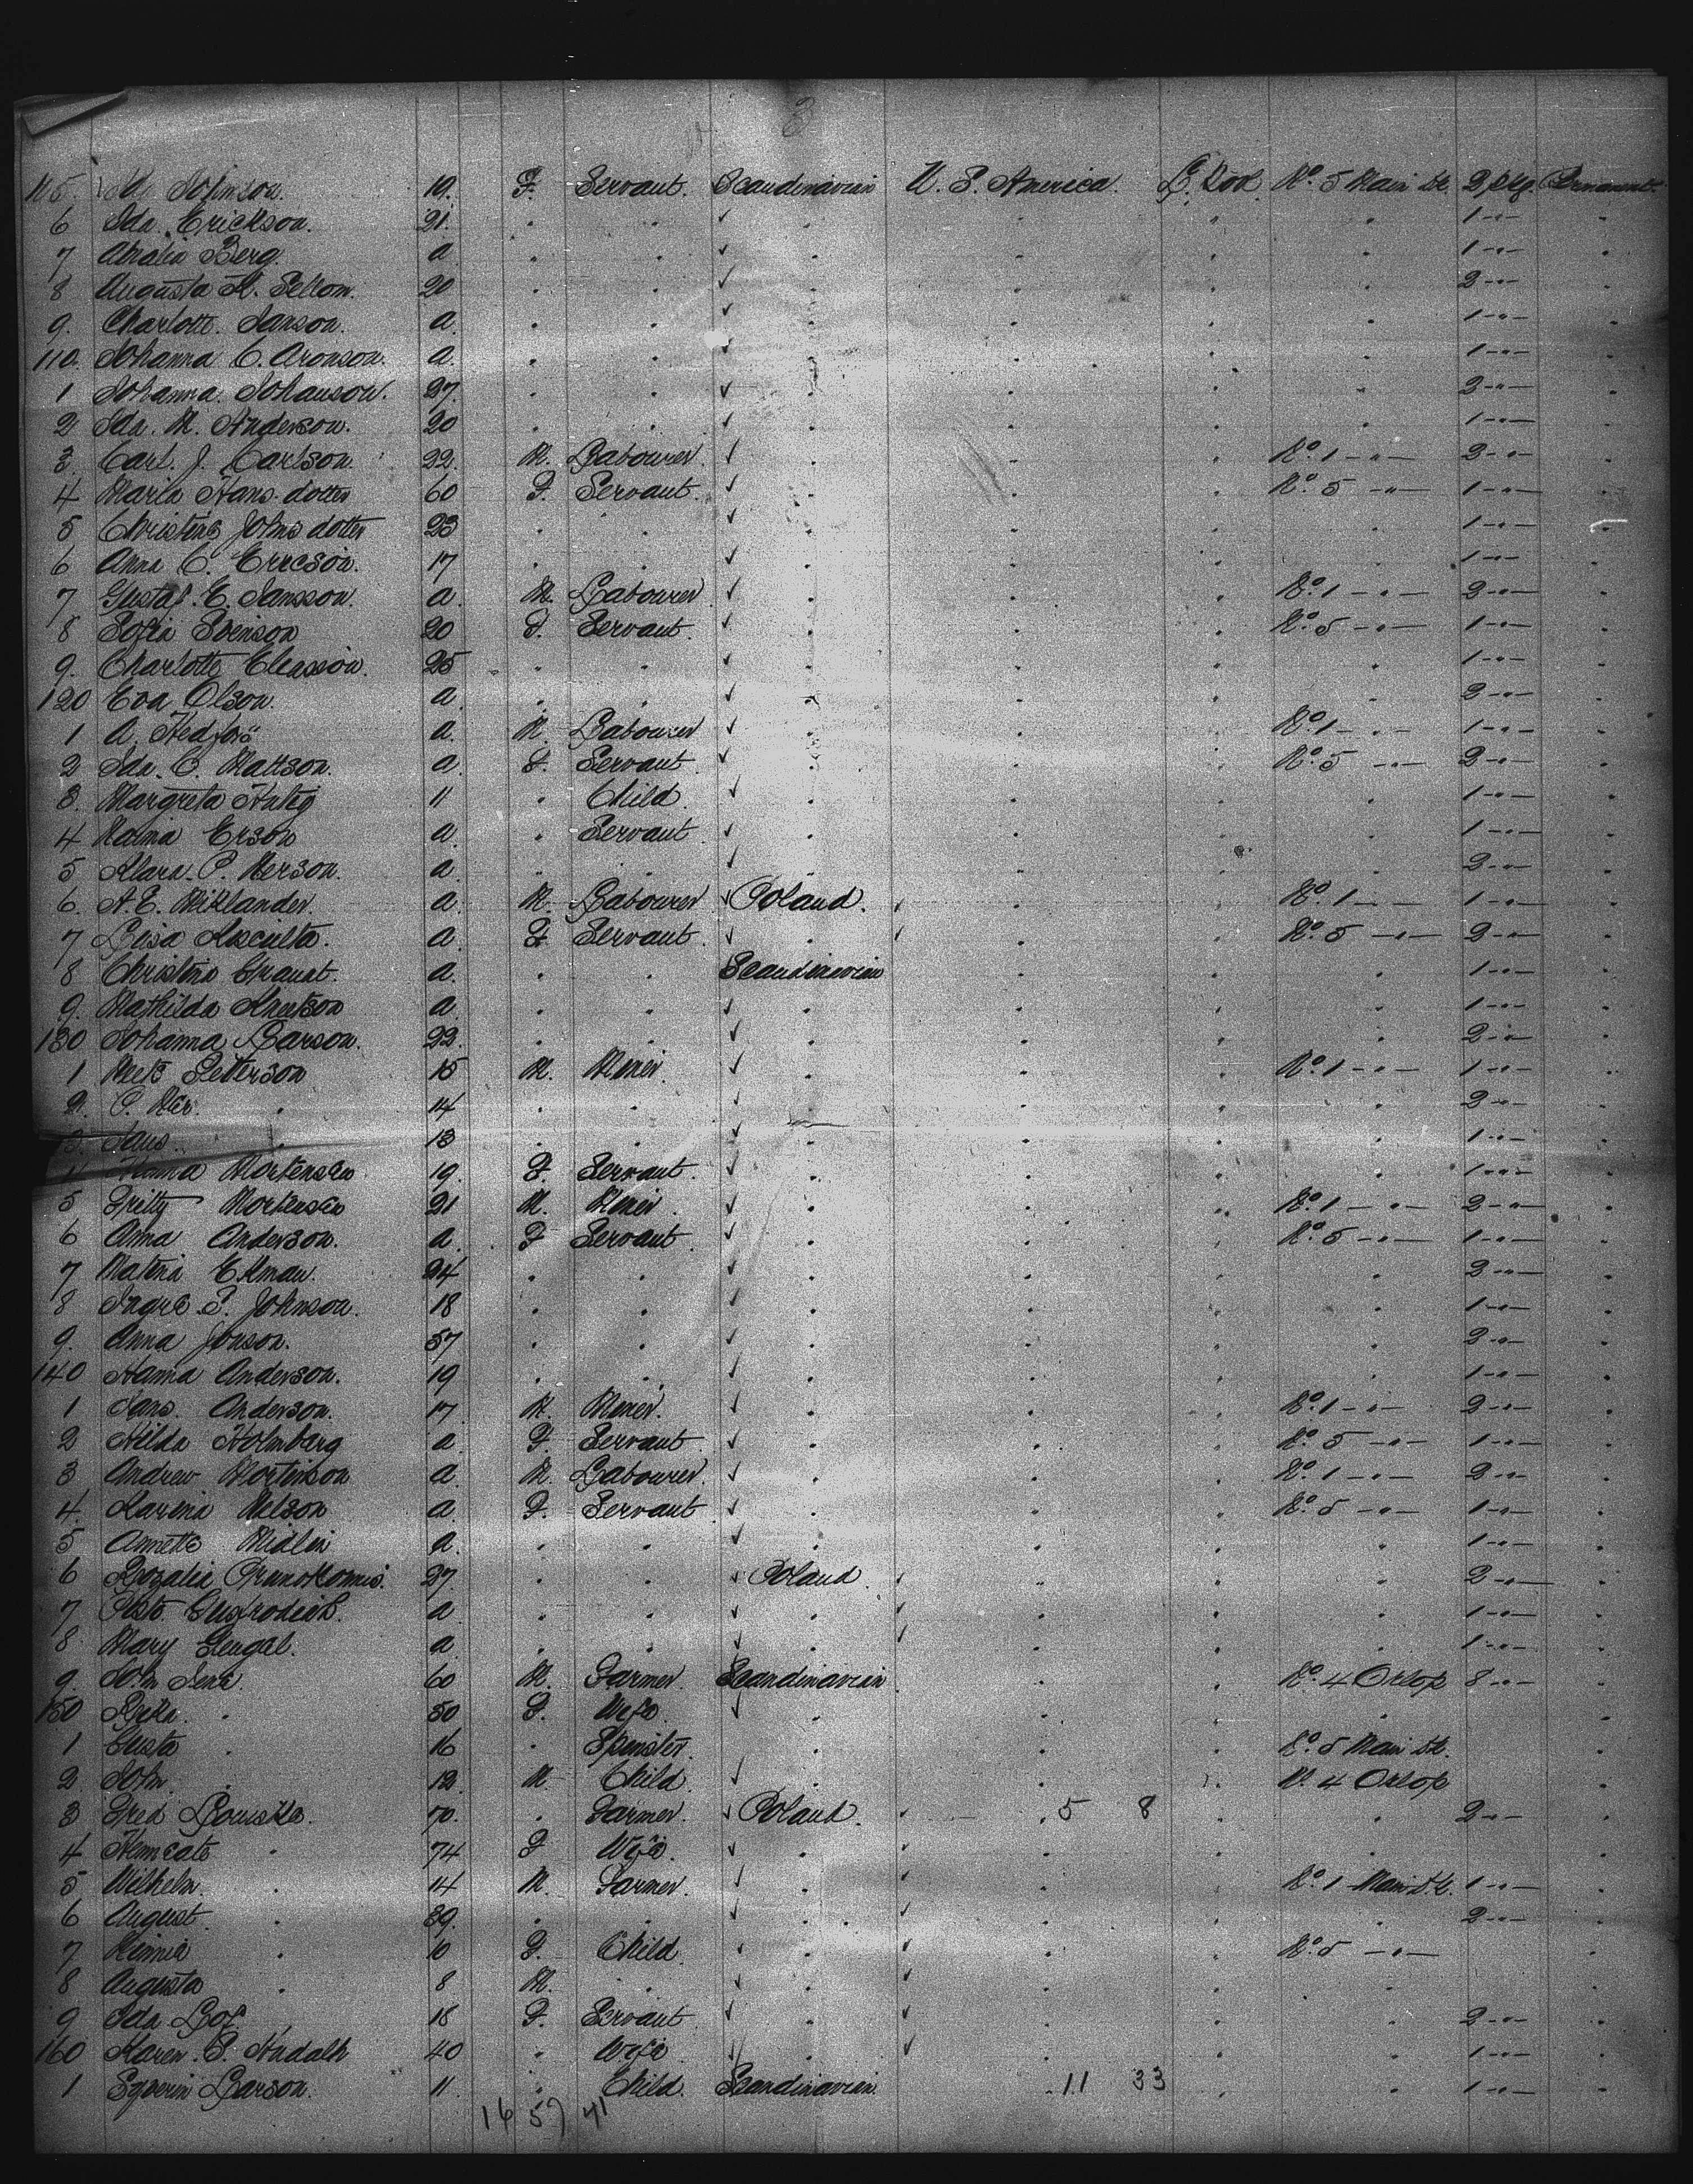 3
105 Ida Johnson. 19. F. Servant. Scandinavian U. S. America. L. Pool No. 5 Main Dk. 2 pkg. Permanent
6 Ida. Erickson. 21. " " ✓ " " " " 1 - " - "
7 Amalia Berg a " " ✓ " " " " 1 - " - "
8 Augusta M. 20 " " ✓ " " " " 2 - " - "
9. Charlotte. Janson. a. " " ✓ " " " " 1 - " - "
110. Johanna C. Aronson. a. " " ✓ " " " " 1 - " - "
1 Johanna. Johanson. 27. " " ✓ " " " " 2 - " - "
2 Ida. M. Anderson. 20 " " ✓ " " " " 1 - " - "
3. Carl. J. Carlson. 22. M. Labourer. ✓ " " " No. 1 - " - 2 - " - "
4 Maria Hans. dotter 60 F. Servant. ✓ " " " No. 5 - " - 1 - " - "
5 Christine Johns dotter 23 " " ✓ " " " " 1 - " - "
6 Anna C. Ericson. 17 " " ✓ " " " " 1 - " - "
7 Gustaf. E. Jansson. a. M. Labourer ✓ " " " No. 1 - " - 2 - " - "
8 Sofia Svenson 20 F. Servant. ✓ " " " No. 5 - " - 1 - " - "
9. Charlotte Eleasson. 25 " " ✓ " " " " 1 - " - "
120 Eva Olson. a. " " ✓ " " " " 2 - " - "
1 A. a. M. Labourer ✓ " " " No. 1 - " - 1 - " - "
2 Ida. C. Mattson. a. F. Servant ✓ " " " No. 5 - " - 2 - " - "
3. Margreta 11 " Child. ✓ " " " " 1 - " - "
4 Erson a. " Servant ✓ " " " " 1 - " - "
5 Klara. P. Nerson. a. " " ✓ " " " " 2 - " - "
6. A. E. Wiklander. a. M. Labourer ✓ Poland. " " No. 1 - " - 1 - " - "
7 Lisa a. F. Servant. ✓ " " " No. 5 - " - 2 - " - "
8 Christina a. " " Scandinavian " " " 1 - " - "
9. Mathilda Knutson a. " " ✓ " " " " 1 - " - "
130 Johanna Larson. 22. " " ✓ " " " " 2 - " - "
1 Petterson 15 M. Miner. ✓ " " " No. 1 - " - 1 - " - "
2. P. " 14 " " ✓ " " " " 2 - " - "
3. Hans. " 13 " " ✓ " " " " 1 - " - "
4 Hanna Mortensen 19. F. Servant. ✓ " " " " 1 - " - "
5 Mortensen 21 M. Miner. ✓ " " " No. 1 - " - 2 - " - "
6 Anna Anderson. a. F. Servant. ✓ " " " No. 5 - " - 1 - " - "
7 Ekman. 24 " " ✓ " " " " 2 - " - "
8 S. Johnson. 18 " " ✓ " " " " 1 - " - "
9. Anna Jonson. 57 " " ✓ " " " " 2 - " - "
140 Hanna Anderson. 19 " " ✓ " " " " 1 - " - "
1 Hans. Anderson. 17. M. Miner. ✓ " " " No. 1 - " - 2 - " - "
2 Hilda Holmberg a. F. Servant ✓ " " " No. 5 - " - 1 - " - "
3 Andrew Mortenson a. M. Labourer. ✓ " " " No. 1 - " - 2 - " - "
4. Karina Nelson a. F. Servant ✓ " " " No. 5 - " - 1 - " - "
5 Annette a. " " ✓ " " " " 1 - " - "
6 Rozalia 27. " " ✓ Poland. " " " 2 - " - "
7 a. " " ✓ " " " " 1 - " - "
8 Mary a. " " ✓ " " " " 1 - " - "
9. 60 M. Farmer. Scandinavian " " No. 4 Orlop 8 - " - "
150 " 50 F. Wife. ✓ " " " "
1 Gusta " 16 " Spinster. " " " No. 5 Main Dk.
2 John. " 12. M Child. ✓ " " " N. 4 Orlop
3 Fred 70. " Farmer. ✓ Poland. " 5 8 " " 2 - " - "
4 " 74 F Wife. ✓ " " " " "
5 Wilhelm. " 14 M. Farmer. ✓ " " " No. 1 Main Dk. 1 - " - "
6 August. " 39. " " ✓ " " " " 2 - " - "
7 " 10 F. Child. ✓ " " " No. 5 - " - "
8 Augusta " 8 M. " ✓ " " " " "
9 Ida 18 F. Servant. ✓ " " " " 2 - " - "
160 Karen. 40 " Wife ✓ " " " " 1 - " - "
1 Larson. 11 " Child. Scandinavian. " 11 33 " " 1 - " - "
16 57 41